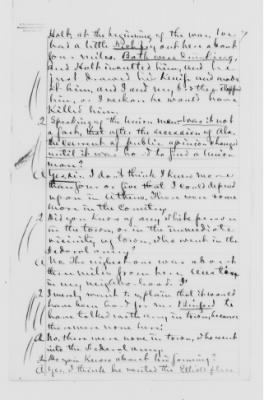 Holt, at the beginning of the war, he
had a little out here about
four miles. Both were drinking,
and Holt insulted him, and he
just drawed his knife and made
at him, and I and my b-d-y stopped
him, or I reckon he would have
killed him.
Q Speaking of the Union men—was it not
a fact, that after the secession of Ala
the current of public opinion changed
until it was hard to find a Union
man?
A Yes sir. I don't think I knew more
than four or five that I could depend
upon in Athens. There were some
more in the County.
Q Did you know of any white person
in the town, or in the immediate
vicinity of town, who went in the
Federal army?
A No. The nighest one was about
three miles from here,
in my neighborhood.
Q I merely want to explain that it would
have been hard for me to
have talked with any in town, because
there were none here?
A No, there were none in town, who went
into the Federal army.
Q Do you know about his farming?
A Yes, I think he rented the Elliott place